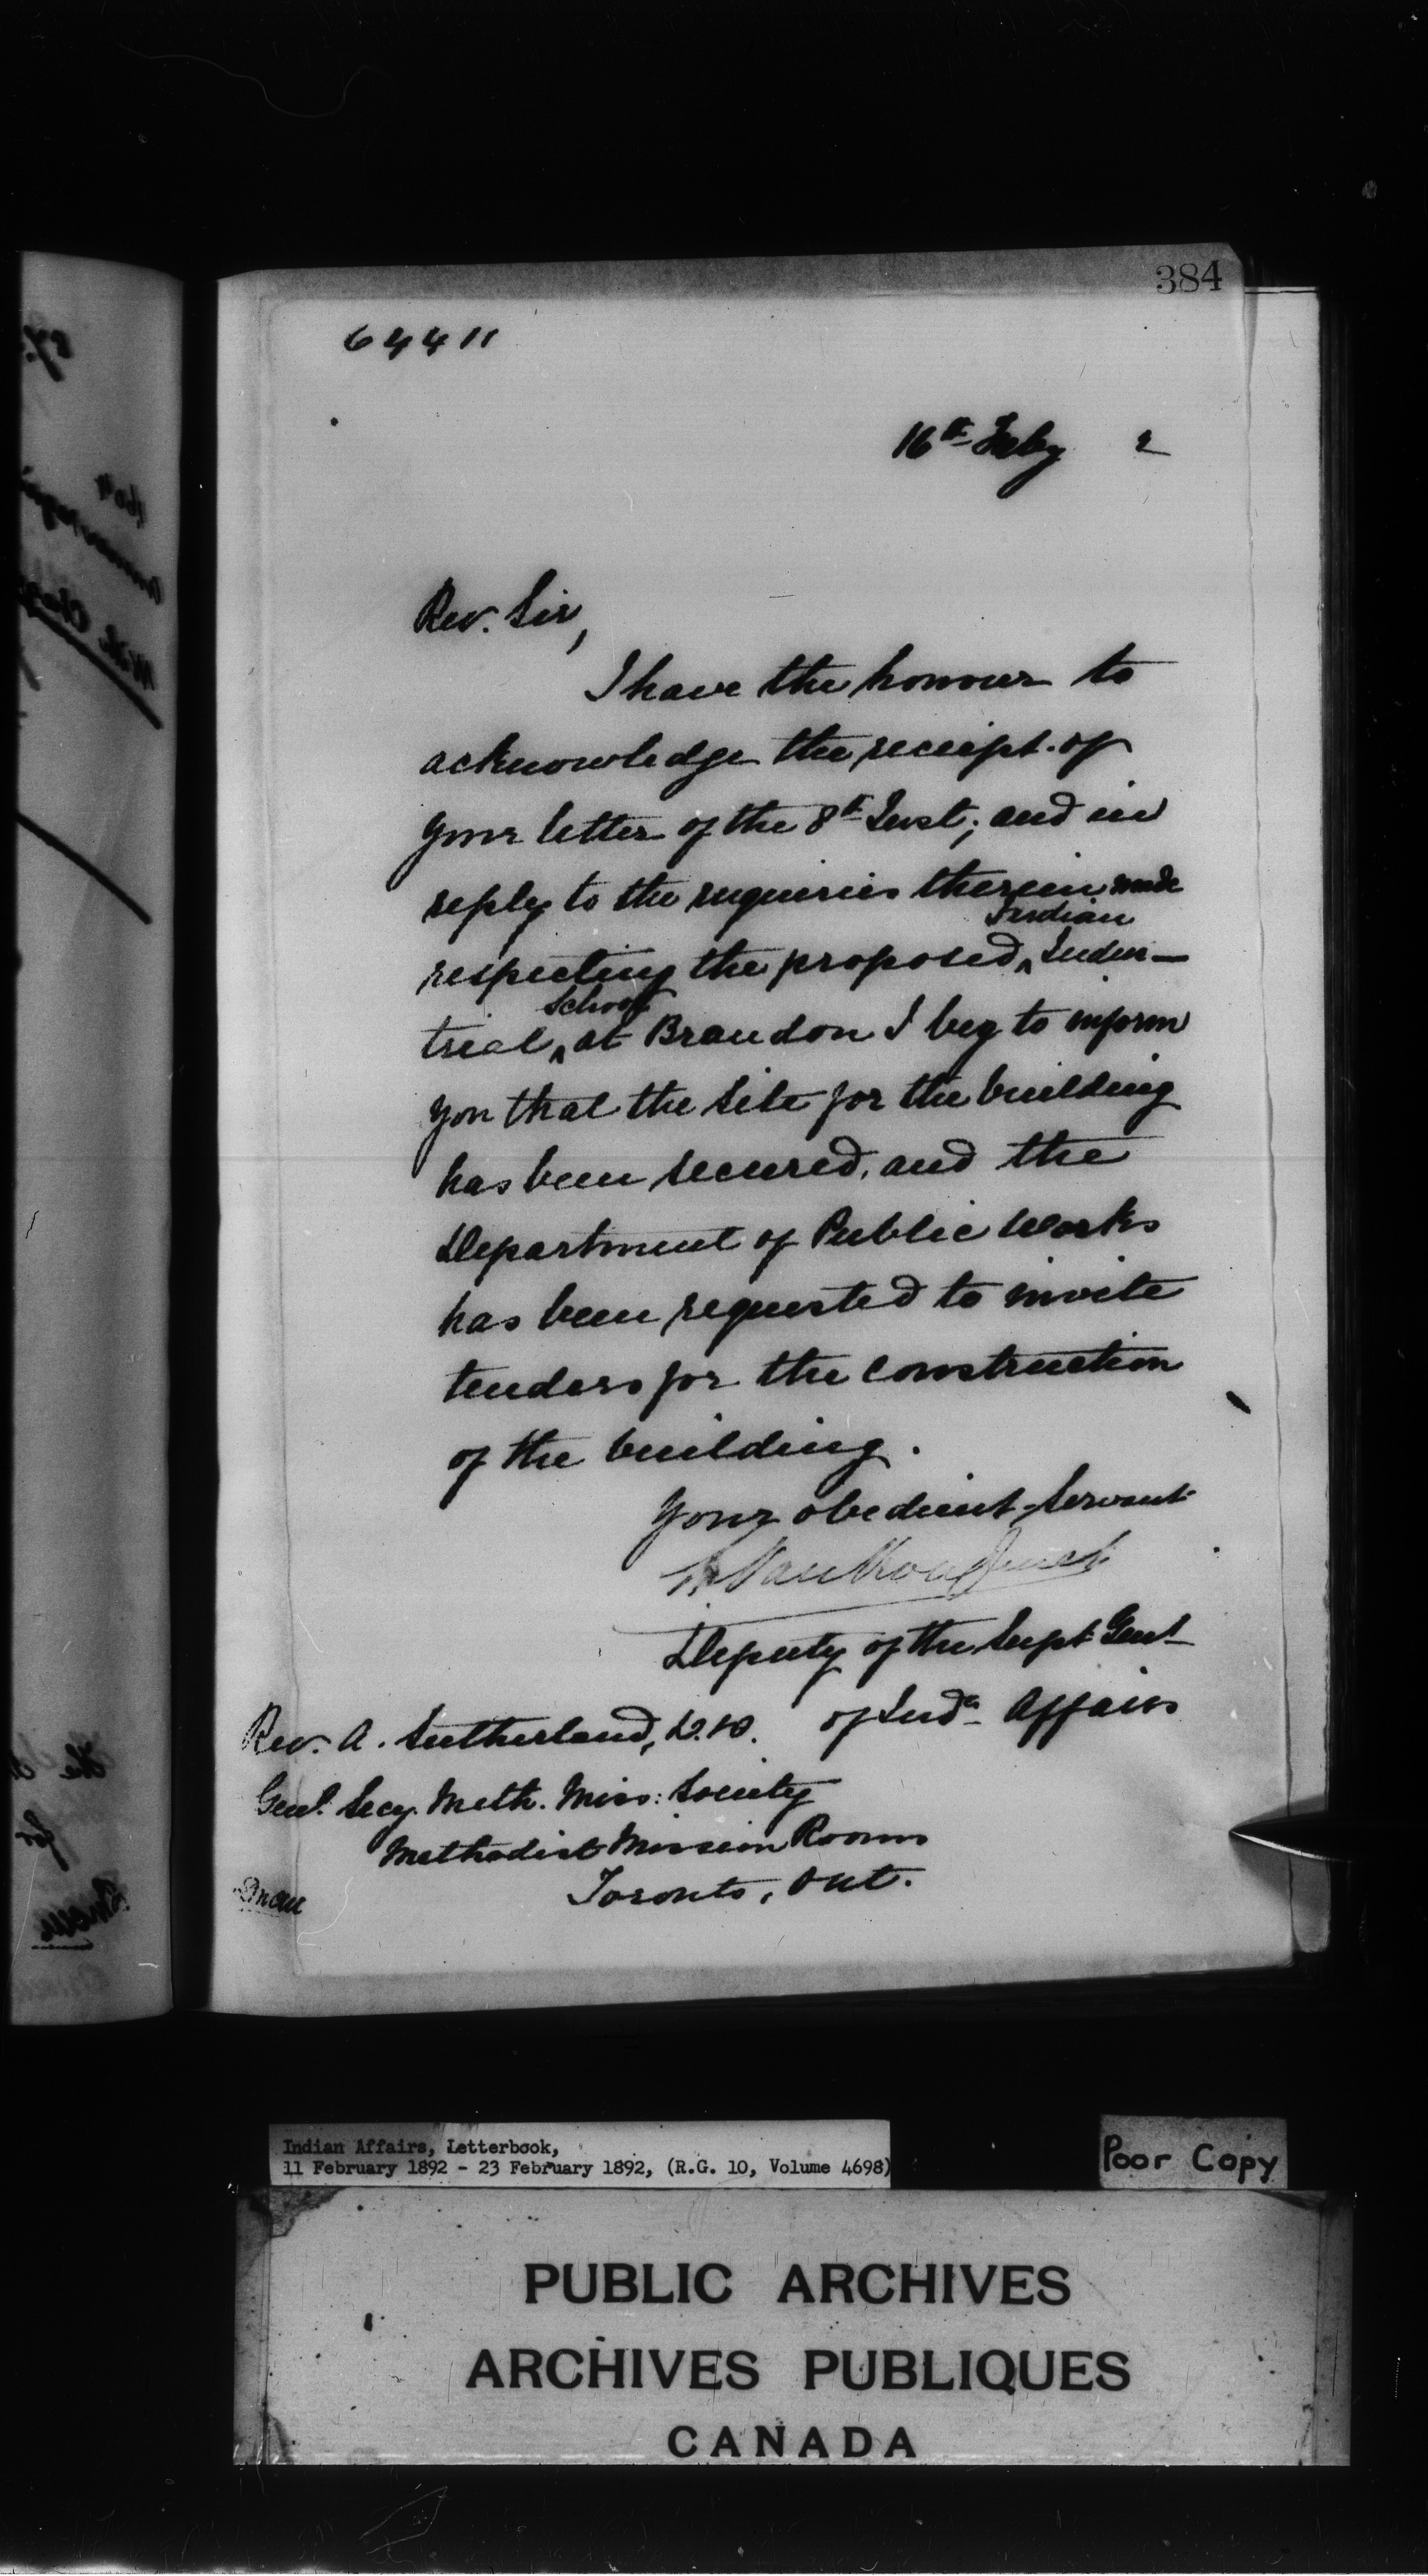 384
64411
16th Feby 2
Rev. Sir,
I have the honour to
acknowledge the receipt of
your letter of the 8th Inst; and in
reply to the enquiries therein made
Indian
respecting the proposed ^ Indus-
School
trial ^ at Brandon I beg to inform
you that the site for the building
has been secured, and the
Department of Public Works
has been requested to invite
tenders for the construction
of the building.
Your obedient Servant
L. Vankoughnet
Deputy of the Supt Genl
of Indn Affairs
Rev. A. Sutherland, D.D.
Genl. Secy. Meth. Miss: Society
Methodist Mission Rooms
Toronto, Ont.
Indian Affairs, Letterbook,
11 February 1892 - 23 February 1892, (R.G. 10, Volume 4698)
Poor Copy
PUBLIC ARCHIVES
ARCHIVES PUBLIQUES
CANADA